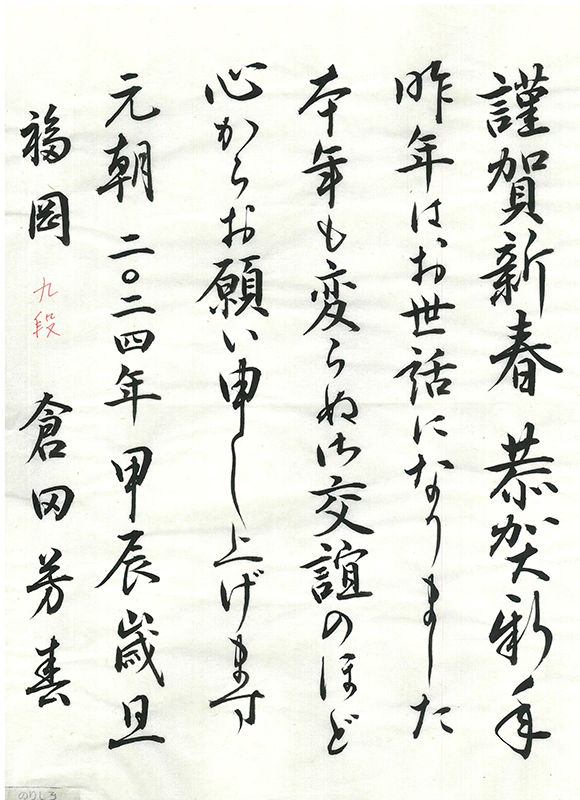 謹賀新春 恭賀新年
昨年はお世話になりました
本年も変らぬ御交誼のほど
心からお願い申し上げます
元朝 二〇二四年 甲辰歳旦
福岡 九段 倉田芳春
のりしろ